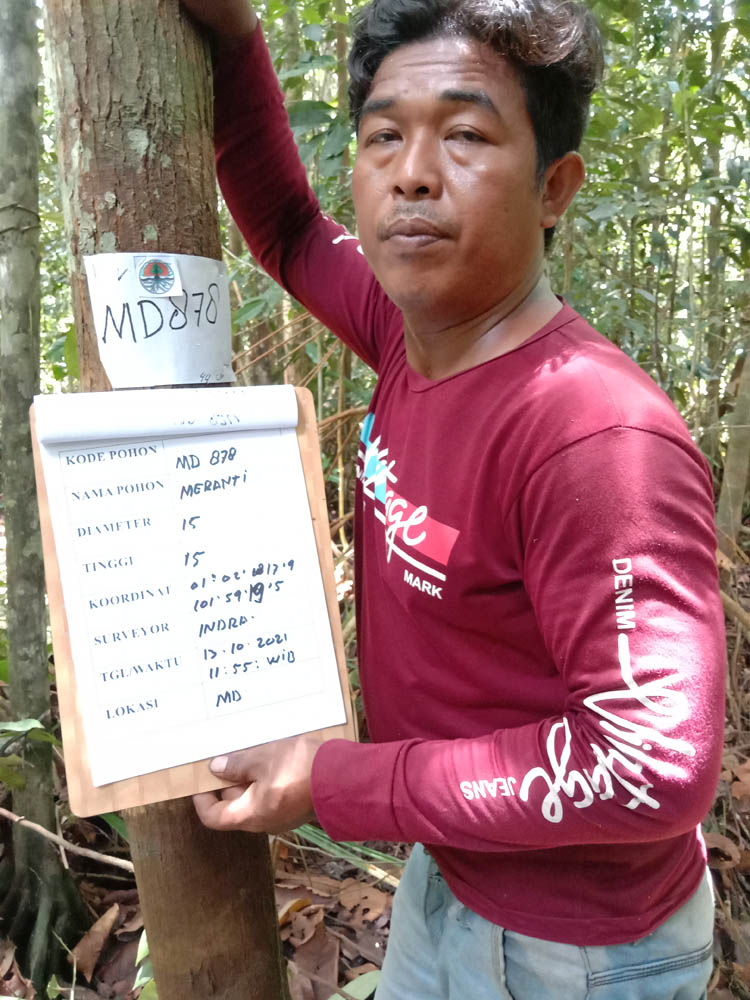 MD878
KODE POHON MD 878
NAMA POHON MERANTI
DIAMETER 15
TINGGI 15
KOORDINAT 01:02:
101:59:19.5
SURVEYOR INDRA.
TGL/WAKTU 13.10.2021
11:55: WIB
LOKASI MD
MARK
DENIM
Vintage
JEANS